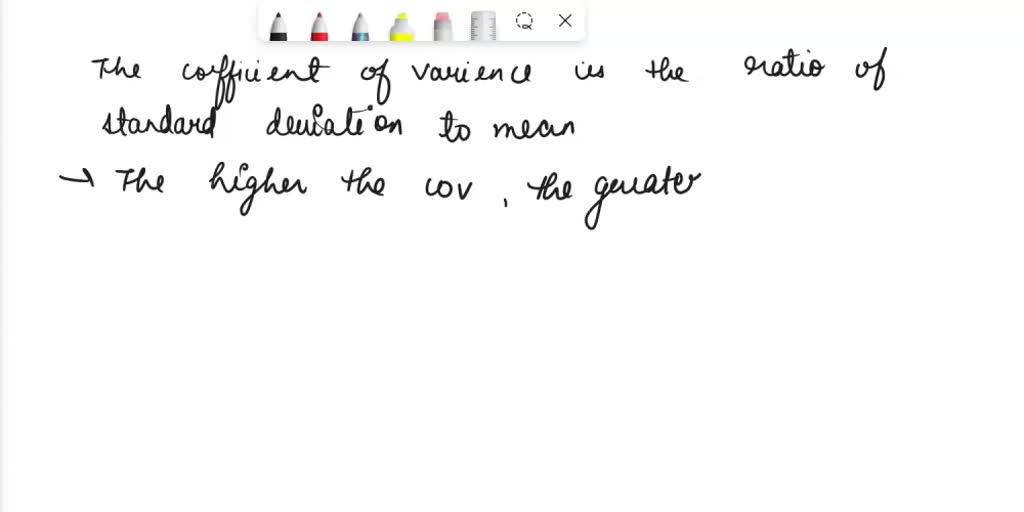 The cofficient of varience is the ratio of
standard deviation to mean
→ The higher the cov, the greater